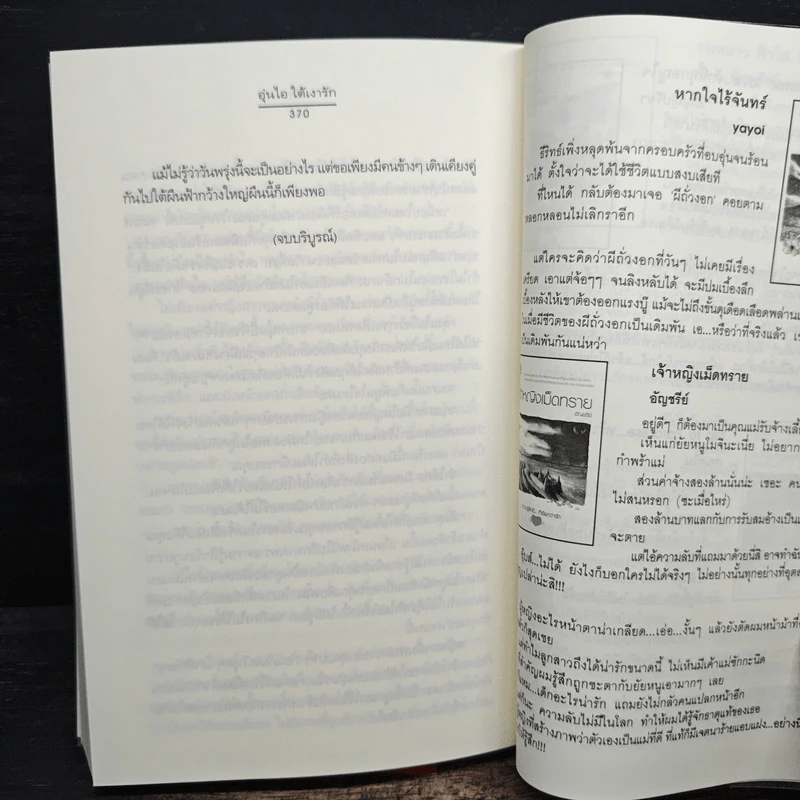 อุ่นไอ ใต้เงารัก
370
แม้ไม่รู้ว่าวันพรุ่งนี้จะเป็นอย่างไร แต่ขอเพียงมีคนข้างๆ เดินเคียงคู่
กันไปใต้ผืนฟ้ากว้างใหญ่ผืนนี้ก็เพียงพอ
(จบบริบูรณ์)
หากใจไร้จันทร์
yayoi
ธีริทธ์เพิ่งหลุดพ้นจากครอบครัวที่อบอุ่นจนร้อน
มาได้ ตั้งใจว่าจะได้ใช้ชีวิตแบบสงบเสียที
ที่ไหนได้ กลับต้องมาเจอ 'ผีถั่วงอก' คอยตาม
หลอกหลอนไม่เลิกราอีก
แต่ใครจะคิดว่าผีถั่วงอกที่วันๆ ไม่เคยมีเรื่อง
เครียด เอาแต่จ้อๆๆ จนลิงหลับได้ จะมีปมเบื้องลึก
เบื้องหลังให้เขาต้องออกแรงบู๊ แม้จะไม่ถึงขั้นดุเดือดเลือดพล่าน
เมื่อมีชีวิตของผีถั่วงอกเป็นเดิมพัน เอ...หรือว่าที่จริงแล้ว
เป็นเดิมพันกันแน่หว่า
เจ้าหญิงเม็ดทราย
อัญชรีย์
หญิงเม็ดทราย
อยู่ดีๆ ก็ต้องมาเป็นคุณแม่รับจ้างเลี้
เห็นแก่ยัยหนูโมจินะเนี่ย ไม่อยาก
กำพร้าแม่
ส่วนค่าจ้างสองล้านนั่นน่ะ เชอะ คน
ไม่สนหรอก (ซะเมื่อไหร่)
สองล้านบาทแลกกับการรับสมอ้างเป็น
จะตาย
แต่ไอ้ความลับที่แถมมาด้วยนี่สิ อาจทำฉัน
อุ๊บส์...ไม่ได้ ยังไงก็บอกใครไม่ได้จริงๆ ไม่อย่างนั้นทุกอย่างที่อุตส
เปล่าน่ะสิ!!!
ผู้หญิงอะไรหน้าตาน่าเกลียด...เอ่อ...งั้นๆ แล้วยังตัดผมหน้าม้าที่
สุดเชย
แต่ทำไมลูกสาวถึงได้น่ารักขนาดนี้ ไม่เห็นมีเค้าแม่ซักกะนิด
สำคัญผมรู้สึกถูกชะตากับยัยหนูเอามากๆ เลย
...เด็กอะไรน่ารัก แถมยังไม่กลัวคนแปลกหน้าอีก
ความลับไม่มีในโลก ทำให้ผมได้รู้จักธาตุแท้ของเธอ
หญิงที่สร้างภาพว่าตัวเองเป็นแม่ที่ดี ที่แท้ก็มีเจตนาร้ายแอบแฝง...อย่างนี้
รู้สึก!!!